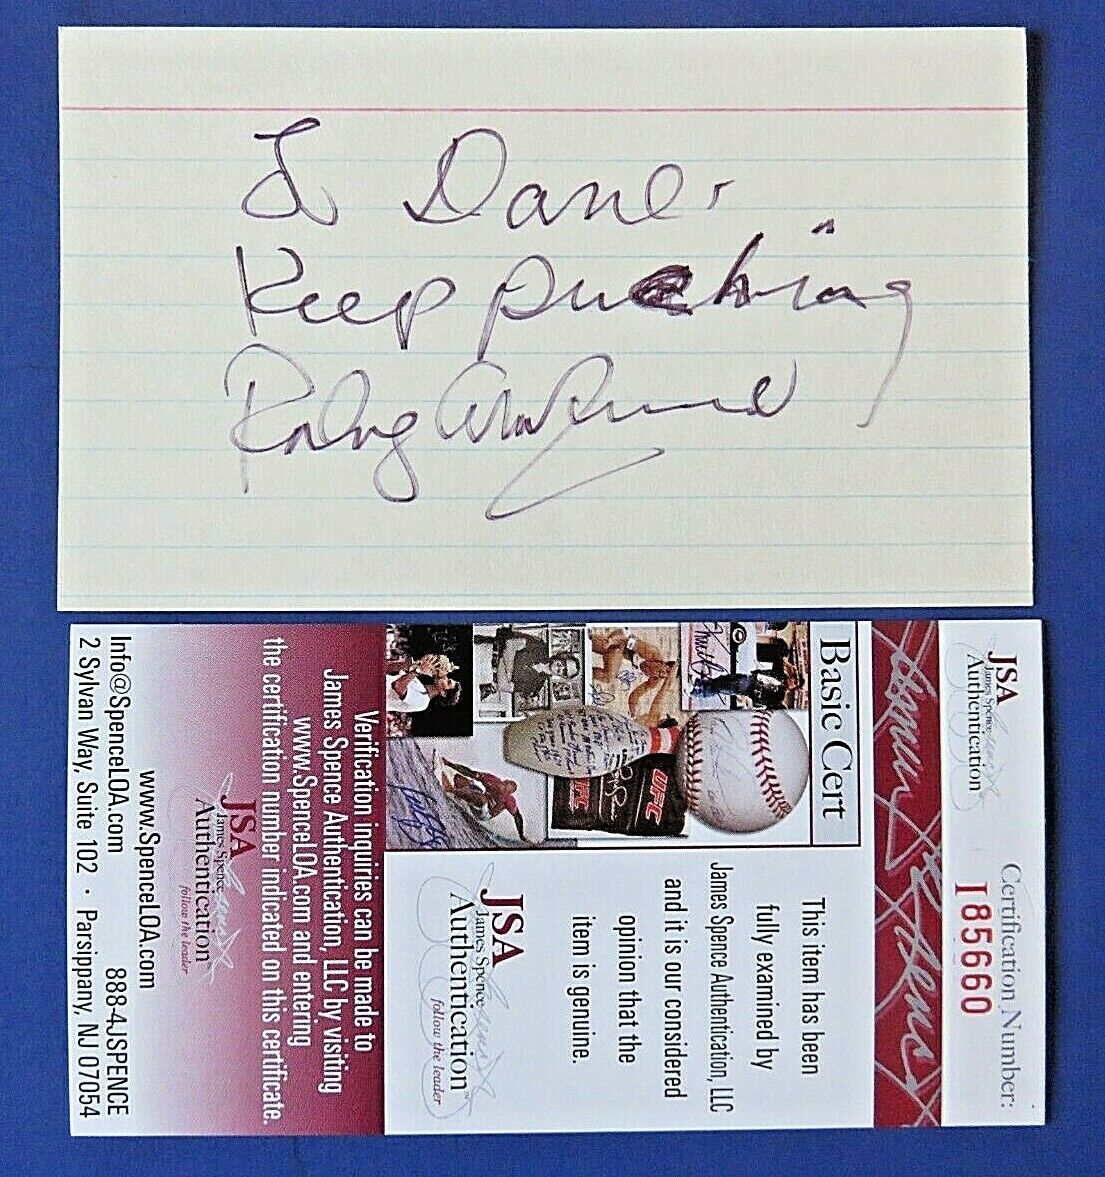 To Daniel
Keep punching
JSA
James Spence
Authentication
Certification Number:
I85660
Basic Cert
UFC
UFC
This item has been
fully examined by
James Spence Authentication, LLC
and it is our considered
opinion that the
item is genuine.
JSA
James Spence
Authentication™
follow the leader
Verification inquiries can be made to
James Spence Authentication, LLC by visiting
www.SpenceLOA.com and entering
the certification number indicated on this certificate.
JSA
James Spence
Authentication™
follow the leader
www.SpenceLOA.com
Info@SpenceLOA.com 888-4JSPENCE
2 Sylvan Way, Suite 102 • Parsippany, NJ 07054